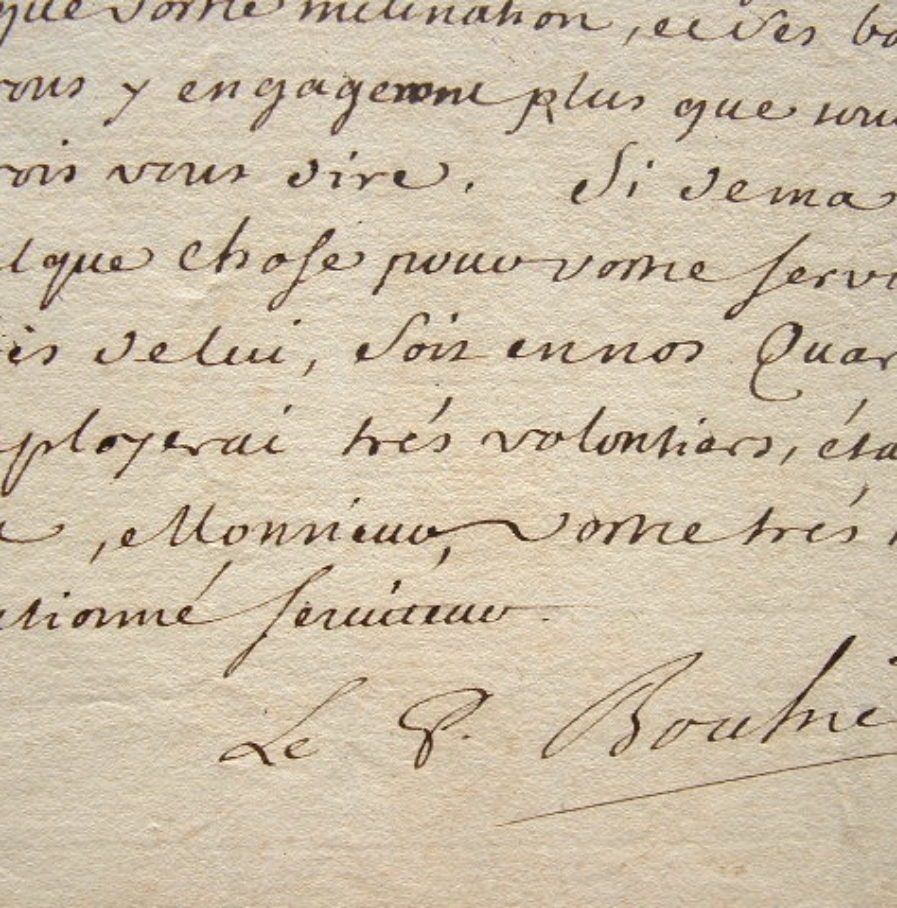 que votre inclination, et des bo
vous y engageront plus que tou
rois vous dire. Si dema
lque chose pour votre servi
ès de lui, Soit en nos Quar
ployerai trés volontiers, éta
, Monsieur, votre trés
ctionné serviteur.
Le P. Bouhie